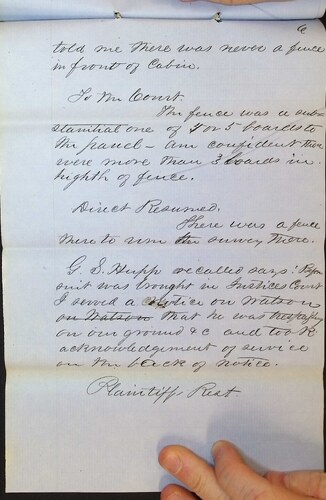 6
told me there was never a fence
in front of Cabin.
To the Court.
The fence was a sub-
stantial one of 4 or 5 boards to
the panel - am confident there
were more than 3 boards in
highth of fence.
Direct Resumed.
There was a fence
there to run the survey there.
G. S. Hupp recalled says: Before
suit was brought in Justices Court
I served a notice on Watson
on Watson that he was trespassing
on our ground &c and took
acknowledgement of service
on the back of notice.
Plaintiff Rest